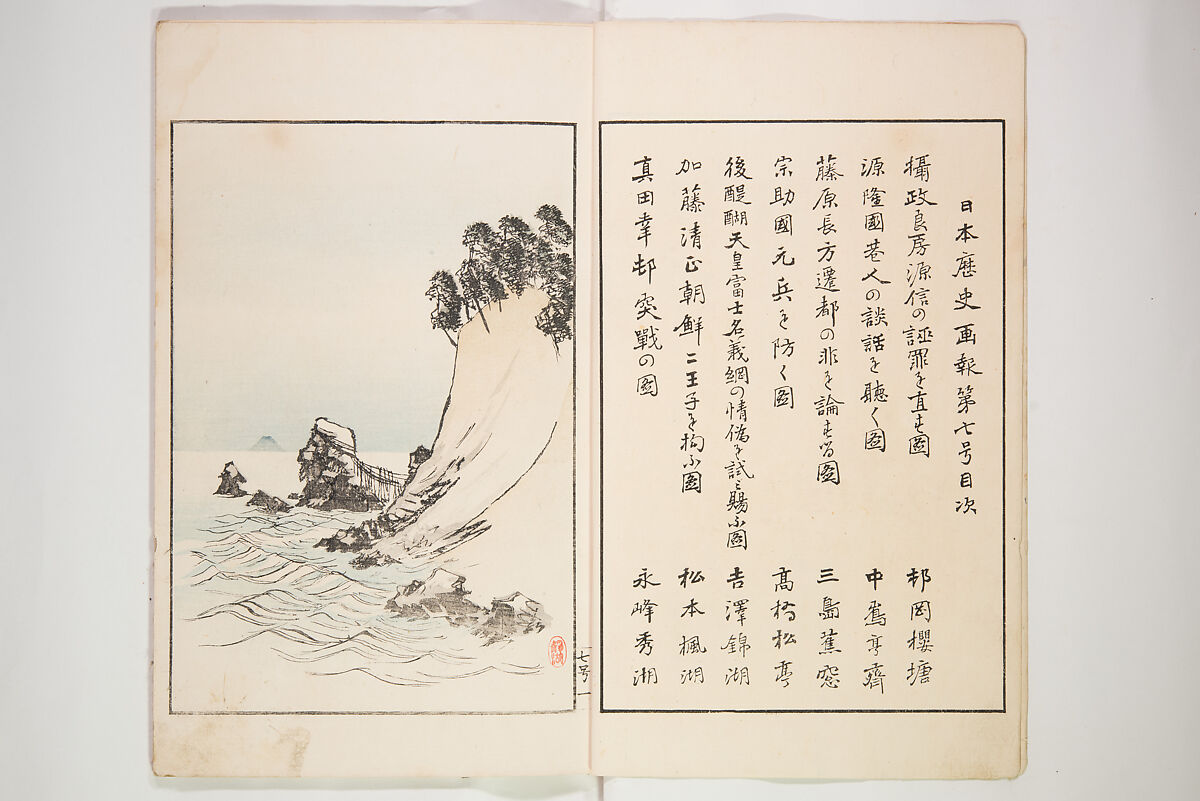 日本歴史画報第七号目次
攝政良房源信の誣罪を直す圖 邨岡櫻塘
源隆國巷人の談話を聽く圖 中嶌亨齋
藤原長方遷都の非を論する圖 三島蕉窓
宗助國元兵を防く圖 高橋松亭
後醍醐天皇富士名義綱の情偽を試ミ賜ふ圖 吉澤錦湖
加藤清正朝鮮二王子を拘ふ圖 松本楓湖
真田幸邨突戰の圖 永峰秀湖
七号 一